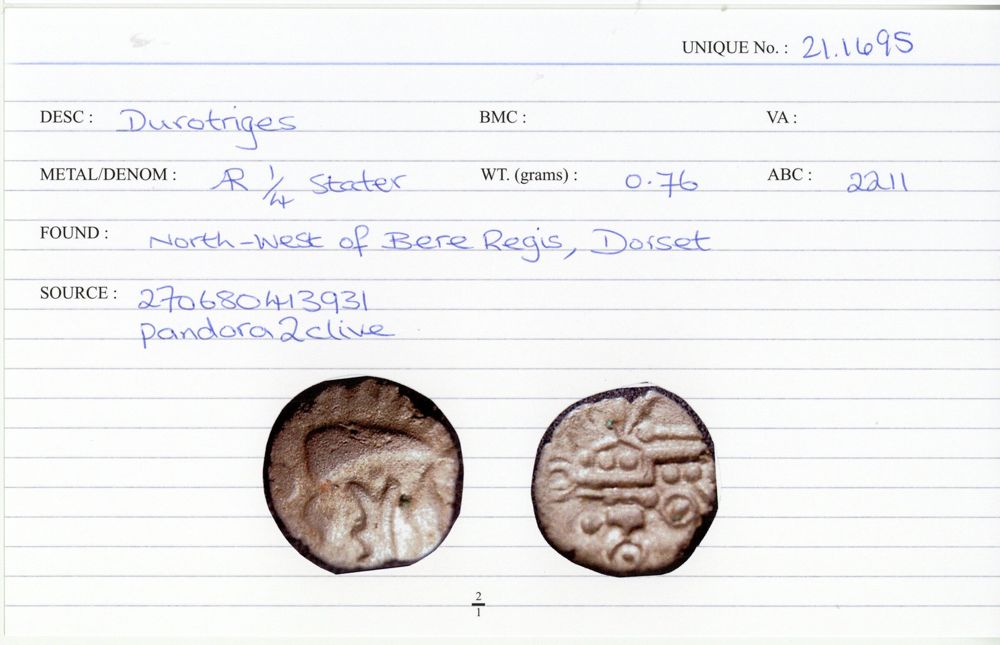 UNIQUE No. : 21.1695
DESC : Durotriges BMC : VA :
METAL/DENOM : AR 1/4 Stater WT. (grams) : 0.76 ABC : 2211
FOUND : North-West of Bere Regis, Dorset
SOURCE : 270680413931
pandora2clive
2/1